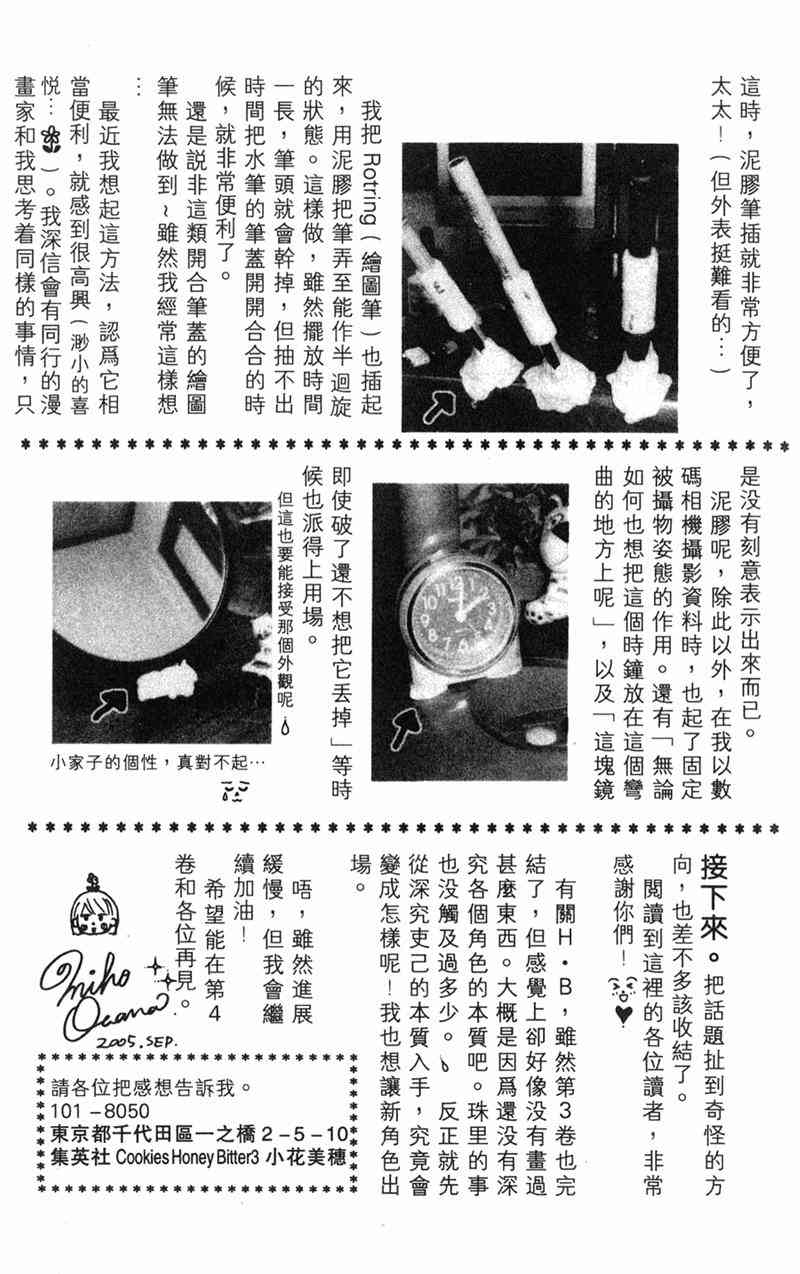 這時，泥膠筆插就非常方便了，
太太！（但外表挺難看的…）
我把 Rotring（繪圖筆）也插起
來，用泥膠把筆弄至能作半迴旋
的狀態。這樣做，雖然擺放時間
一長，筆頭就會幹掉，但抽不出
時間把水筆的筆蓋開開合合的時
候，就非常便利了。
還是説非這類開合筆蓋的繪圖
筆無法做到~雖然我經常這樣想
…
最近我想起這方法，認爲它相
當便利，就感到很高興（渺小的喜
悦…）。我深信會有同行的漫
畫家和我思考着同樣的事情，只
是没有刻意表示出來而已。
泥膠呢，除此以外，在我以數
碼相機攝影資料時，也起了固定
被攝物姿態的作用。還有「無論
如何也想把這個時鐘放在這個彎
曲的地方上呢」，以及「這塊鏡
即使破了還不想把它丟掉」等時
候也派得上用場。
但這也要能接受那個外觀呢
小家子的個性，真對不起…
接下來。把話題扯到奇怪的方
向，也差不多該收結了。
閲讀到這裡的各位讀者，非常
感謝你們！♥
有關H・B，雖然第3卷也完
結了，但感覺上卻好像没有畫過
甚麼東西。大概是因爲還没有深
究各個角色的本質吧。珠里的事
也没觸及過多少。反正就先
從深究吏己的本質入手，究竟會
變成怎樣呢！我也想讓新角色出
場。
唔，雖然進展
緩慢，但我會繼
續加油！
希望能在第4
卷和各位再見。
Miho Obana
2005.SEP.
請各位把感想告訴我。
101－8050
東京都千代田區一之橋2－5－10
集英社 Cookies Honey Bitter3 小花美穗